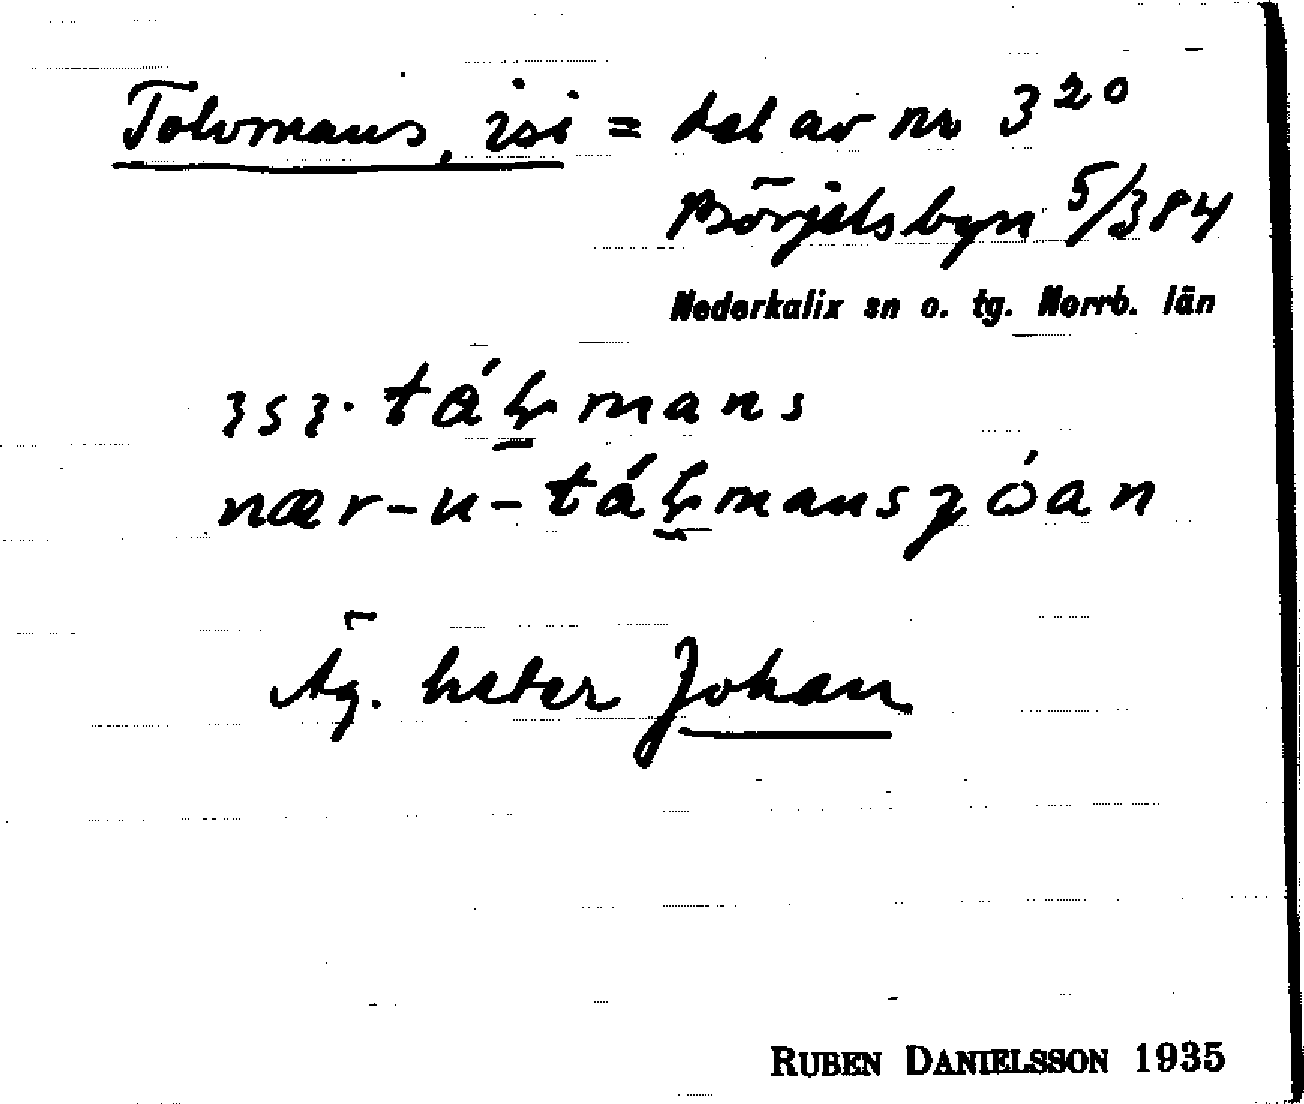 Tolvmans, isi = del av nr 3²⁰
Börjelsbyn 5/384
Nederkalix sn o. tg. Norrb. län
mans
nær-u-
Äg. heter Johan
RUBEN DANIELSSON 1935